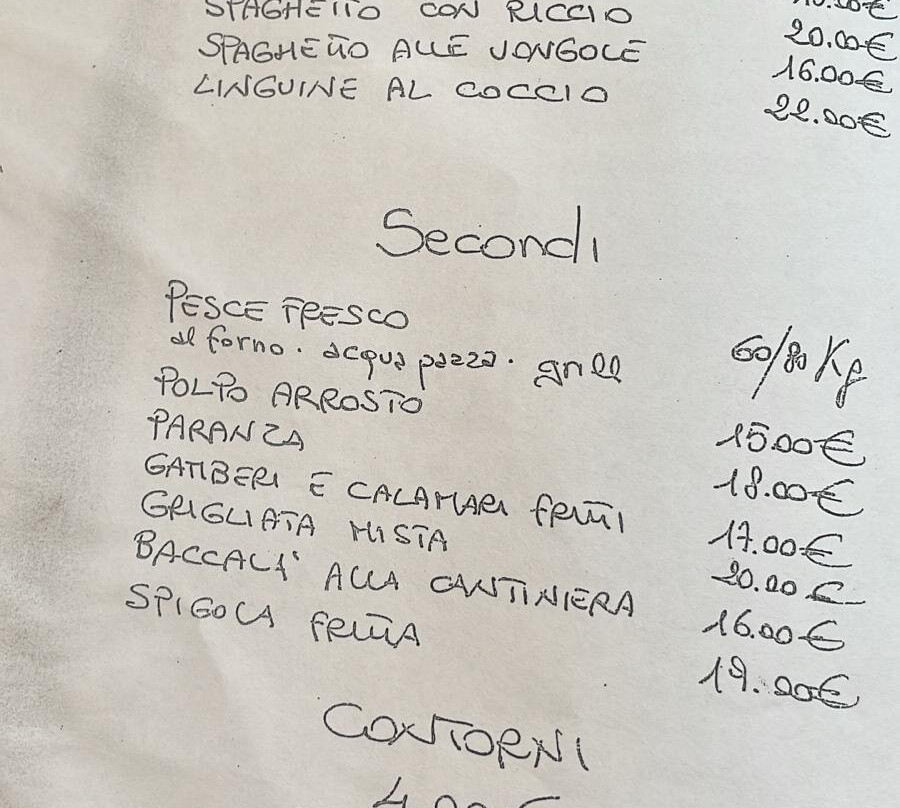 SPAGHETTO CON RICCIO 20.00€
SPAGHETTO ALLE VONGOLE 16.00€
LINGUINE AL COCCIO 22.00€
Secondi
PESCE FRESCO
al forno. acqua pazza. grill 60/80 Kg
POLPO ARROSTO 15.00€
PARANZA 18.00€
GAMBERI E CALAMARI fritti 17.00€
GRIGLIATA MISTA 20.00€
BACCALA' ALLA CANTINIERA 16.00€
SPIGOLA fritta 19.00€
CONTORNI